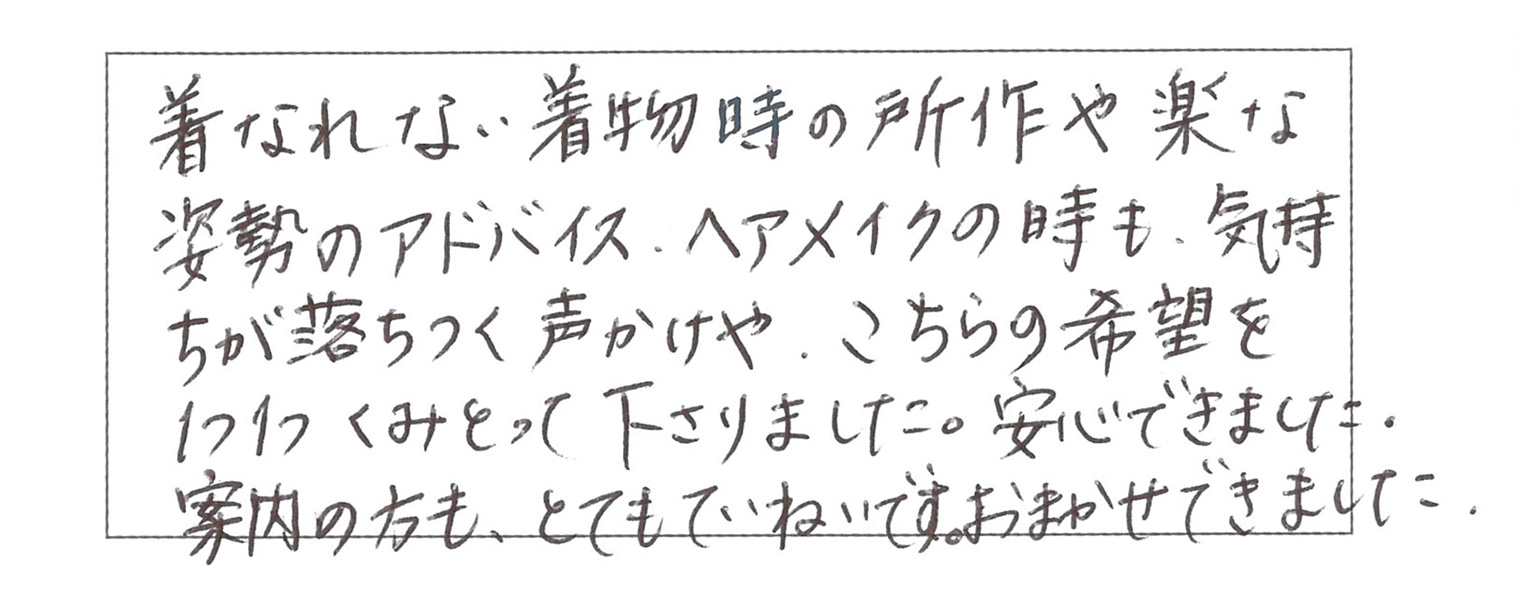 着なれない着物時の所作や楽な
姿勢のアドバイス、ヘアメイクの時も、気持
ちが落ちつく声かけや、こちらの希望を
1つ1つくみとって下さりました。安心できました。
案内の方も、とてもていねいです。おまかせできました。